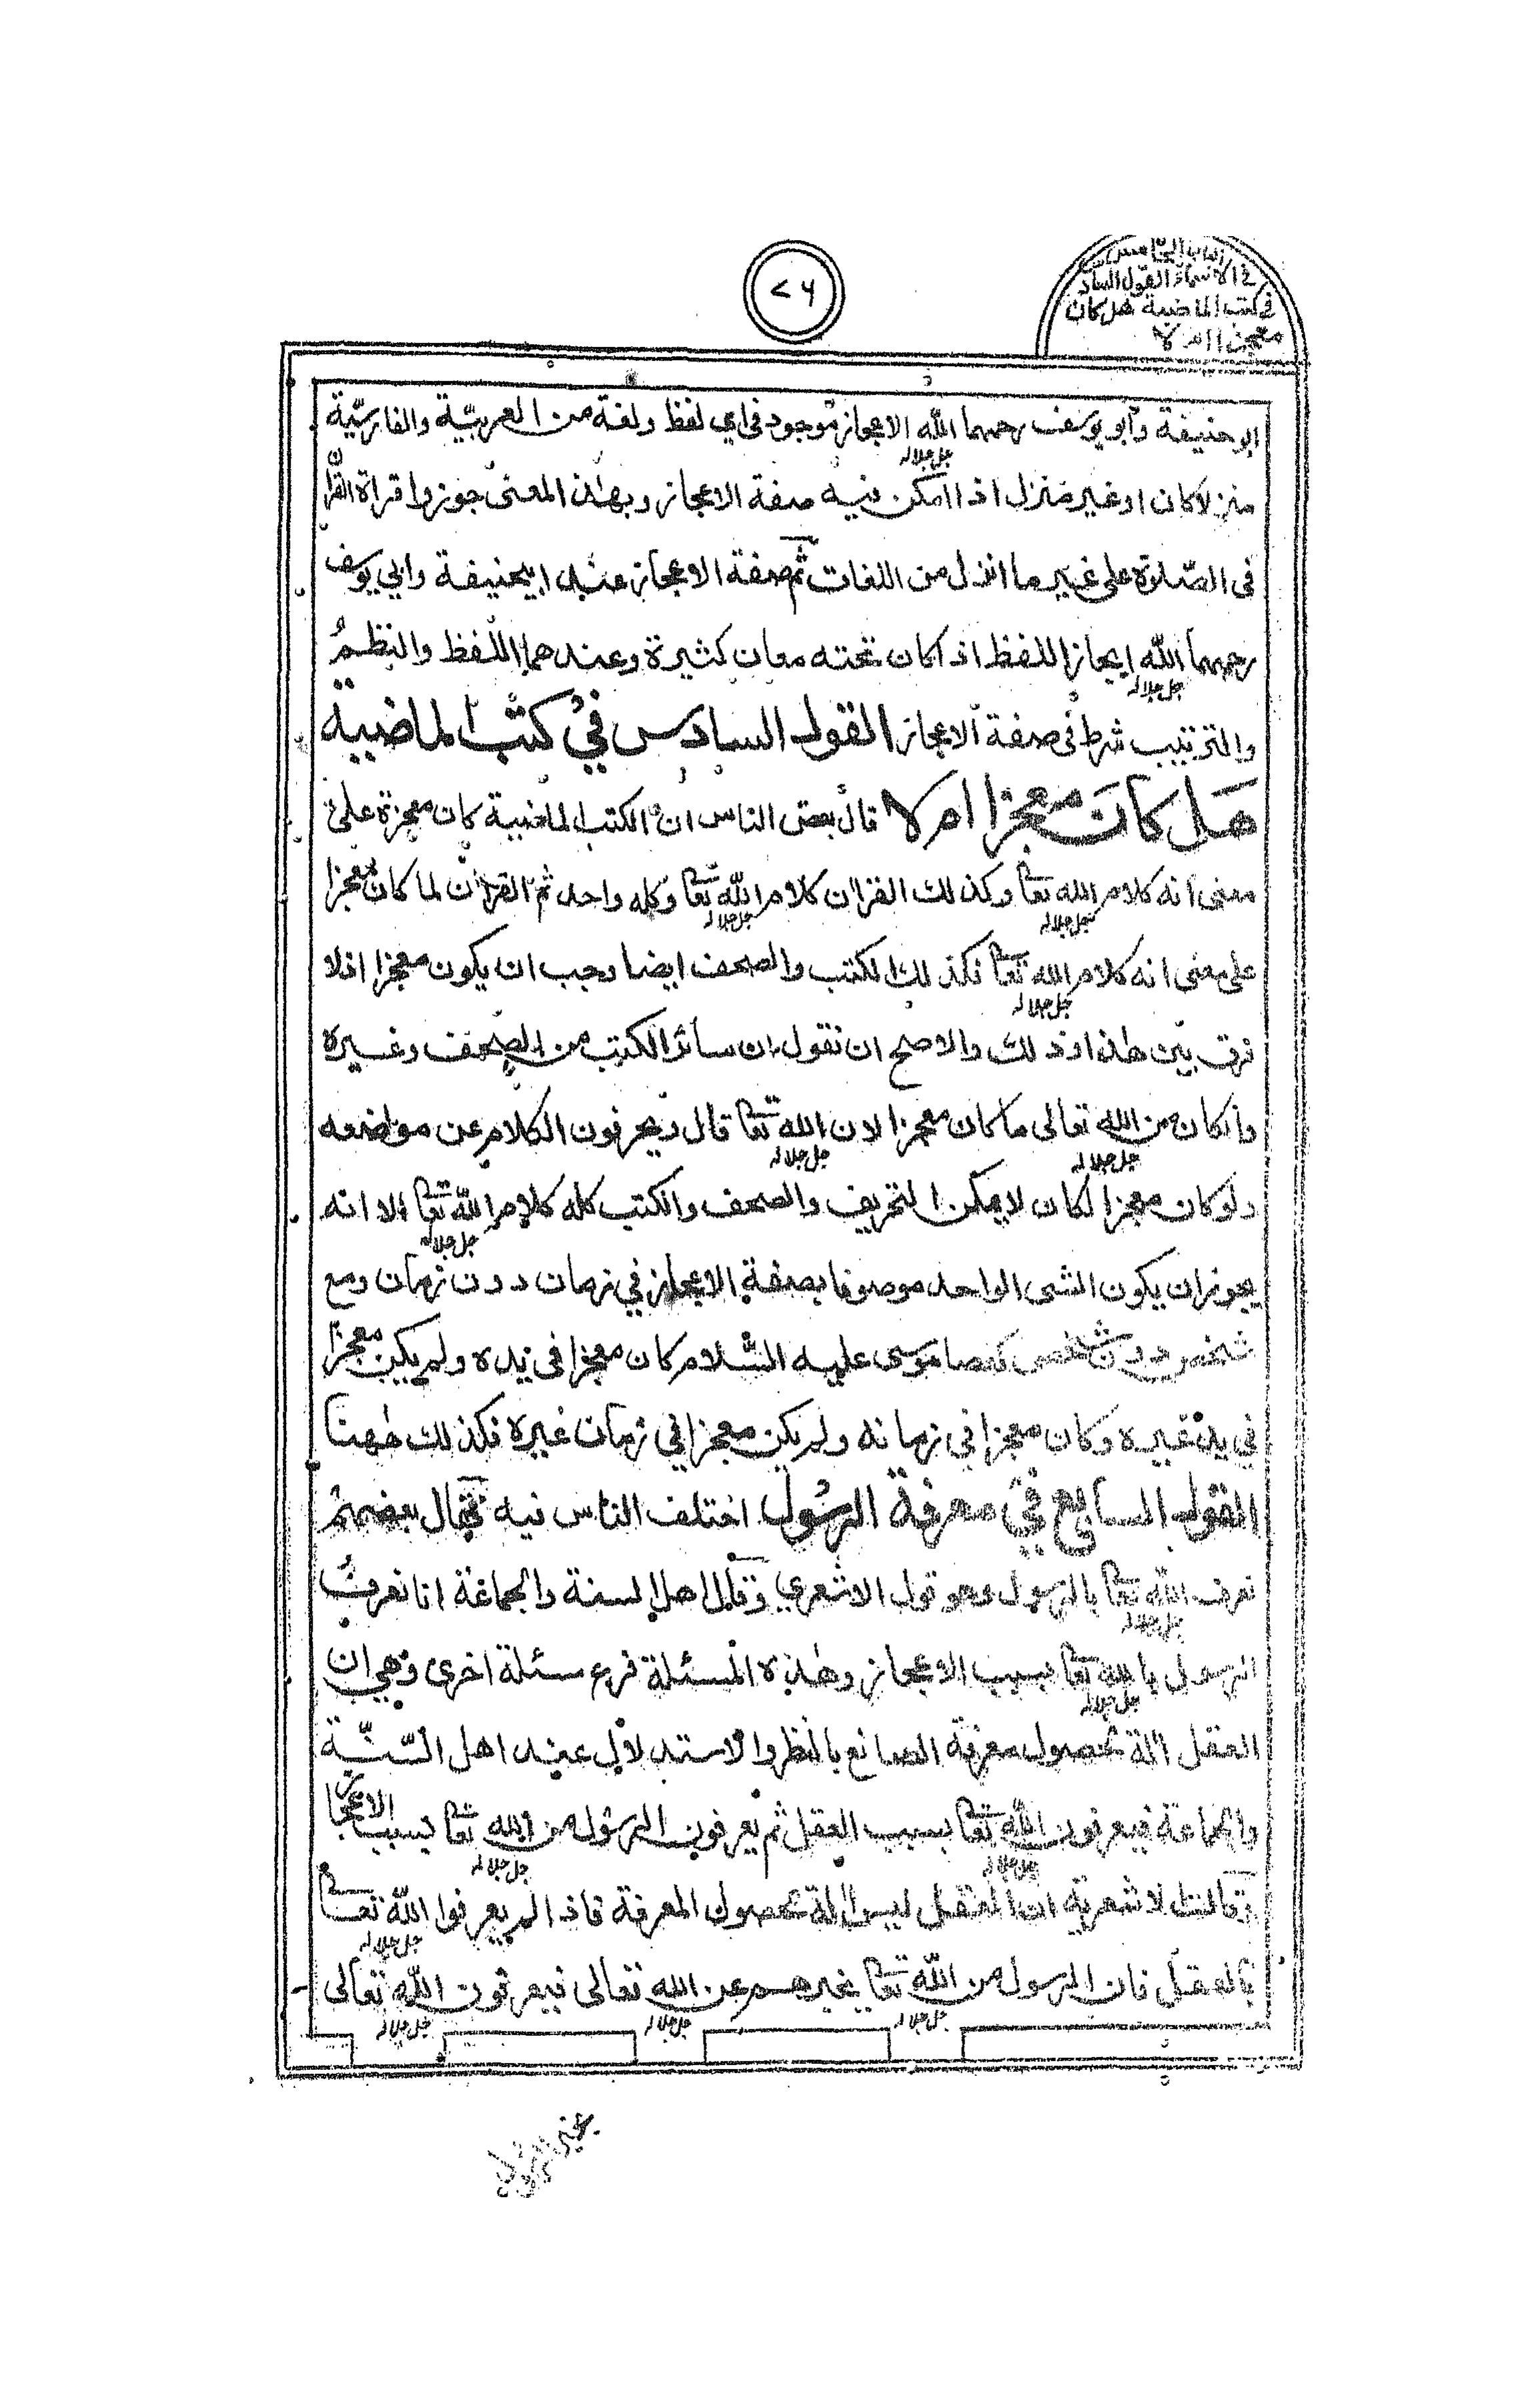 الباب الخامس
في الاسماء القول الساد
في كتب الماضية هل كان
معجزا ام لا
<٦
ابو حنيفة وأبو يوسف رحمهما الله الاعجاز موجود في اي لفظ ولغة من العربيّة والفارسيّة
جل جلاله
منزلا كان او غير منزل اذا امكن فيه صفة الاعجاز وبهذا المعنى جوزوا قراة القرآن
في الصّلاة على غير ما انزل من اللغات ثم صفة الاعجاز عند ابيحنيفة وابي يوسف
رحمهما الله ايجاز اللفظ اذا كان تحته معان كثيرة وعندهما اللّفظ والنظمُ
جل جلاله
والترتيب شرط في صفة الاعجاز القول السادس في كتب الماضية
هَل كَانَ معجزا ام لا قال بعض الناس ان الكتب الماضية كان معجزة على
معنى انه كلام الله تعا وكذلك القران كلام الله تعا وكله واحد ثم القران لما كان معجزا
جل جلاله جل جلاله
على معنى انه كلام الله تعا فكذلك الكتب والصحف ايضا وجب ان يكون معجزا اذ لا
جل جلاله
فرق بين هذا وذلك والاصح ان نقول ان سائر الكتب من الصحف وغيره
وان كان من الله تعالى ما كان معجزا لان الله تعا قال ويحرفون الكلام عن مواضعه
جل جلاله جل جلاله
ولو كان معجزا لكان لا يمكن التحريف والصحف والكتب كله كلام الله تعا الا انه
جل جلاله
يجوز ان يكون الشى الواحد موصوفا بصفة الاعجاز في زمان دون زمان ومع
شخص دون شخص كعصا موسى عليه السّلام كان معجزا في يده ولم يكن معجزا
في يد غيره وكان معجزا في زمانه ولم يكن معجزا في زمان غيره فكذلك ههنا
القول السابع في معرفة الرسول اختلف الناس فيه فقال بعضهم
نعرف الله تعا بالرسول وهو قول الاشعري وقال اهل السنة والجماعة انا نعرف
جل جلاله
الرسول بالله تعا بسبب الاعجاز وهذه المسئلة فرع مسئلة اخرى وهي ان
جل جلاله
العقل الة لحصول معرفة الصانع بالنظر والاستدلال عند اهل السّنّة
والجماعة فيعرفون الله تعا بسبب العقل ثم يعرفون الرسول من الله تعا بسبب الاعجا
جل جلاله جل جلاله
وقالت الاشعرية ان العقل ليس الة لحصول المعرفة فاذا لم يعرفوا الله تعا
جل جلاله
بالعقل فان الرسول من الله تعا يخبرهم عن الله تعالى فيعرفون الله تعالى
جل جلاله جل جلاله جل جلاله